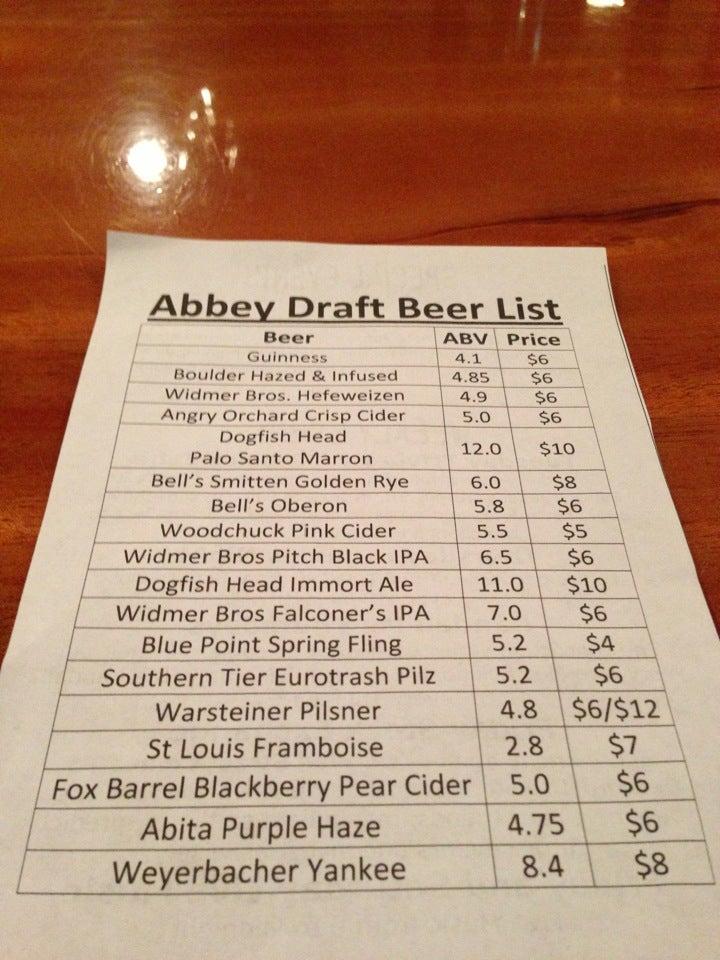 Abbey Draft Beer List
Beer ABV Price
Guinness 4.1 $6
Boulder Hazed & Infused 4.85 $6
Widmer Bros. Hefeweizen 4.9 $6
Angry Orchard Crisp Cider 5.0 $6
Dogfish Head
Palo Santo Marron 12.0 $10
Bell's Smitten Golden Rye 6.0 $8
Bell's Oberon 5.8 $6
Woodchuck Pink Cider 5.5 $5
Widmer Bros Pitch Black IPA 6.5 $6
Dogfish Head Immort Ale 11.0 $10
Widmer Bros Falconer's IPA 7.0 $6
Blue Point Spring Fling 5.2 $4
Southern Tier Eurotrash Pilz 5.2 $6
Warsteiner Pilsner 4.8 $6/$12
St Louis Framboise 2.8 $7
Fox Barrel Blackberry Pear Cider 5.0 $6
Abita Purple Haze 4.75 $6
Weyerbacher Yankee 8.4 $8